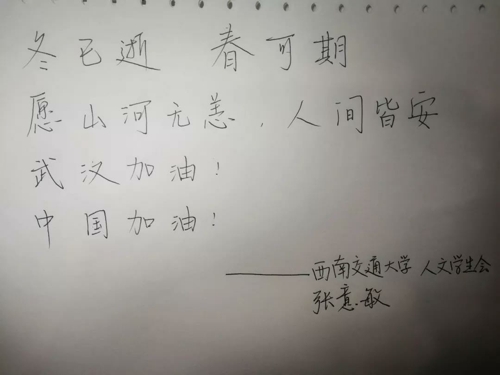 冬已逝 春可期
愿山河无恙，人间皆安
武汉加油！
中国加油！
——西南交通大学 人文学生会
张意敏